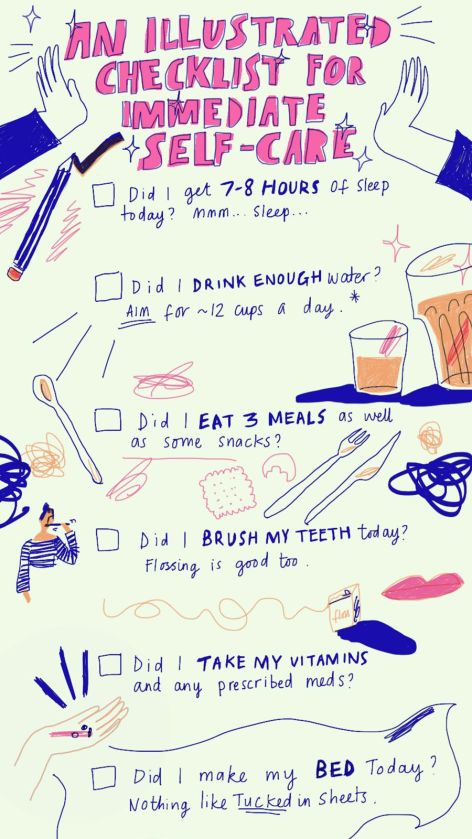 AN ILLUSTRATED
CHECKLIST FOR
IMMEDIATE
SELF-CARE
Did I get 7-8 HOURS of sleep
today? Mmm... Sleep...
Did I DRINK ENOUGH water?
Aim for ~12 cups a day.*
Did I EAT 3 MEALS as well
as some snacks?
Did I BRUSH MY TEETH today?
Flossing is good too.
Did I TAKE MY VITAMINS
and any prescribed meds?
Did I make my BED Today?
Nothing like Tucked in sheets.